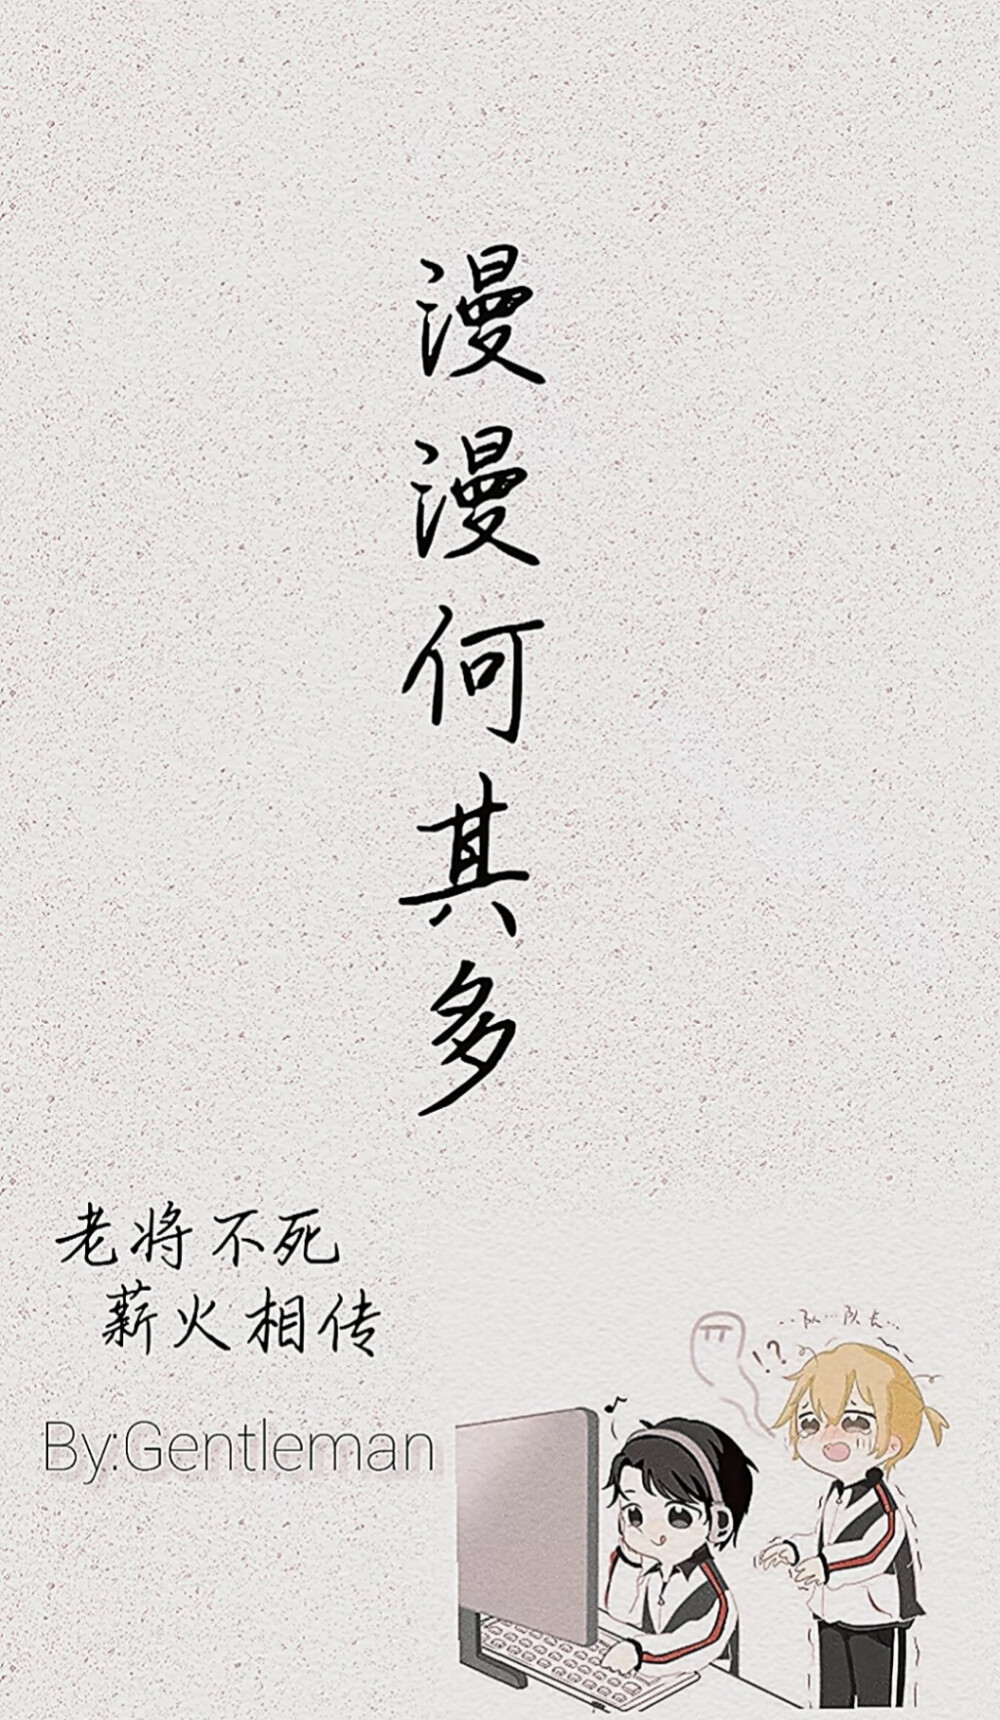 漫漫何其多
老将不死
薪火相传
By:Gentleman
!?
...队...队长...